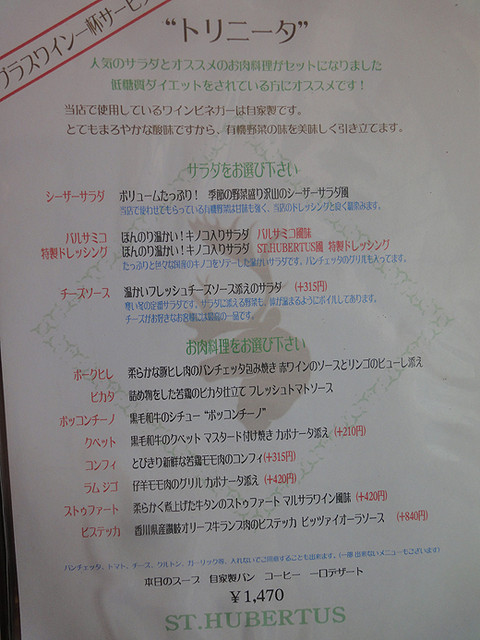 プラスワイン一杯サービス
"トリニータ"
人気のサラダとオススメのお肉料理がセットになりました
低糖質ダイエットをされている方にオススメです！
当店で使用しているワインビネガーは自家製です。
とてもまろやかな酸味ですから、有機野菜の味を美味しく引き立てます。
サラダをお選び下さい
シーザーサラダ ボリュームたっぷり！ 季節の野菜盛り沢山のシーザーサラダ風
当店で使わせてもらっている有機野菜は甘味も強く、当店のドレッシングと良く馴染みます。
バルサミコ ほんのり温かい！キノコ入りサラダ バルサミコ風味
特製ドレッシング ほんのり温かい！キノコ入りサラダ ST.HUBERTUS風 特製ドレッシング
たっぷりと色々な国産のキノコをソテーした温かいサラダです。パンチェッタのグリルも入ってます。
チーズソース 温かいフレッシュチーズソース添えのサラダ (+315円)
寒い冬の定番サラダです。サラダに添える野菜も、体が温まるようにボイルしてあります。
チーズがお好きなお客様には最高の一品です。
お肉料理をお選び下さい
ポークヒレ 柔らかな豚ヒレ肉のパンチェッタ包み焼き 赤ワインのソースとリンゴのピューレ添え
ピカタ 詰め物をした若鶏のピカタ仕立て フレッシュトマトソース
ボッコンチーノ 黒毛和牛のシチュー "ボッコンチーノ"
クペット 黒毛和牛のクペット マスタード付け焼き カポナータ添え (+210円)
コンフィ とびきり新鮮な若鶏モモ肉のコンフィ (+315円)
ラム ジゴ 仔羊モモ肉のグリル カポナータ添え (+420円)
ストゥファート 柔らかく煮上げた牛タンのストゥファート マルサラワイン風味 (+420円)
ビステッカ 香川県産讃岐オリーブ牛ランプ肉のビステッカ ピッツァイオーラソース (+840円)
パンチェッタ、トマト、チーズ、クルトン、ガーリック等、入れないでご用意することも出来ます。(一部 出来ないメニューもございます)
本日のスープ 自家製パン コーヒー 一口デザート
￥1,470
ST.HUBERTUS